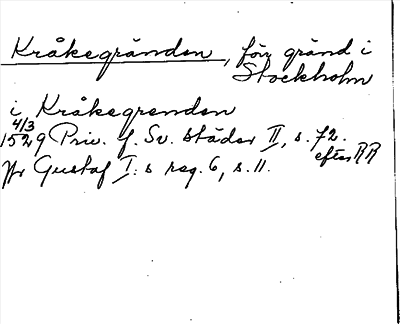 Kråkegränden, förr gränd i
Stockholm
i Kråkegrenden
4/3
1529 Priv. f. Sv. städer II, s. 72.
efter RR
Gustaf I:s reg. 6, s. 11.